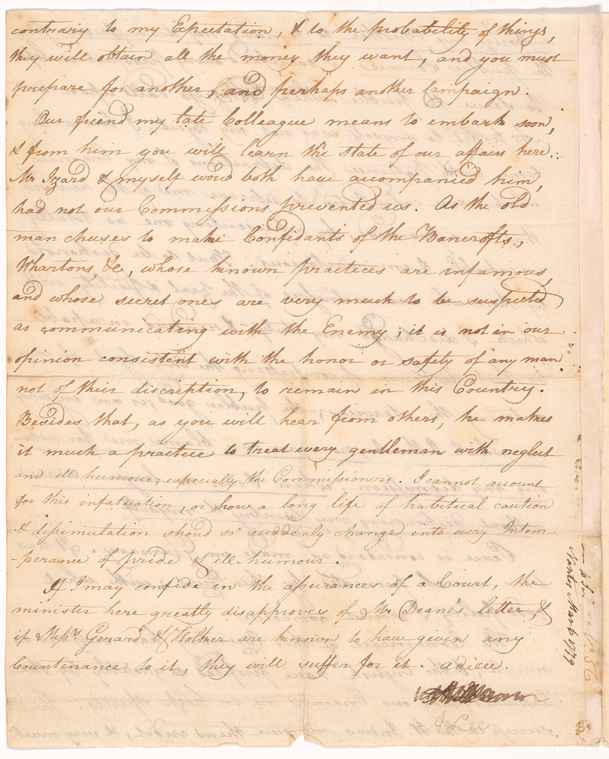 contrary to my Expectation, & to the probability of things,
they will obtain all the money they want, and you must
prepare for another, and perhaps another Campaign.
Our friend my late Colleague means to embark soon,
& from him you will learn the state of our affairs here.
Mr Izard & myself woud both have accompanied him,
had not our Commissions prevented us. As the old
man chuses to make Confidants of the Bancrofts,
Whartons &c, whose known practices are infamous,
and whose secret ones are very much to be suspected
as communicating with the Enemy; it is not in our
opinion consistent with the honor or safety of any man
not of their discription, to remain in this Country.
Besides that, as you will hear from others, he makes
it much a practice to treat every gentleman with neglect
and ill humour, especially the Commissioners. I cannot account
for this infatuation, or how a long life of habitical caution
& dissimulation shoud so suddenly change into every Intem-
-perance of pride & ill-humour.
If I may confide in the assurances of a Court, the
minister here greatly disapproves of Mr Deane's letter, &
if Messrs Gerard & Holker are known to have given any
Countenance to it, they will suffer for it. adieu.
Mar 6 1779